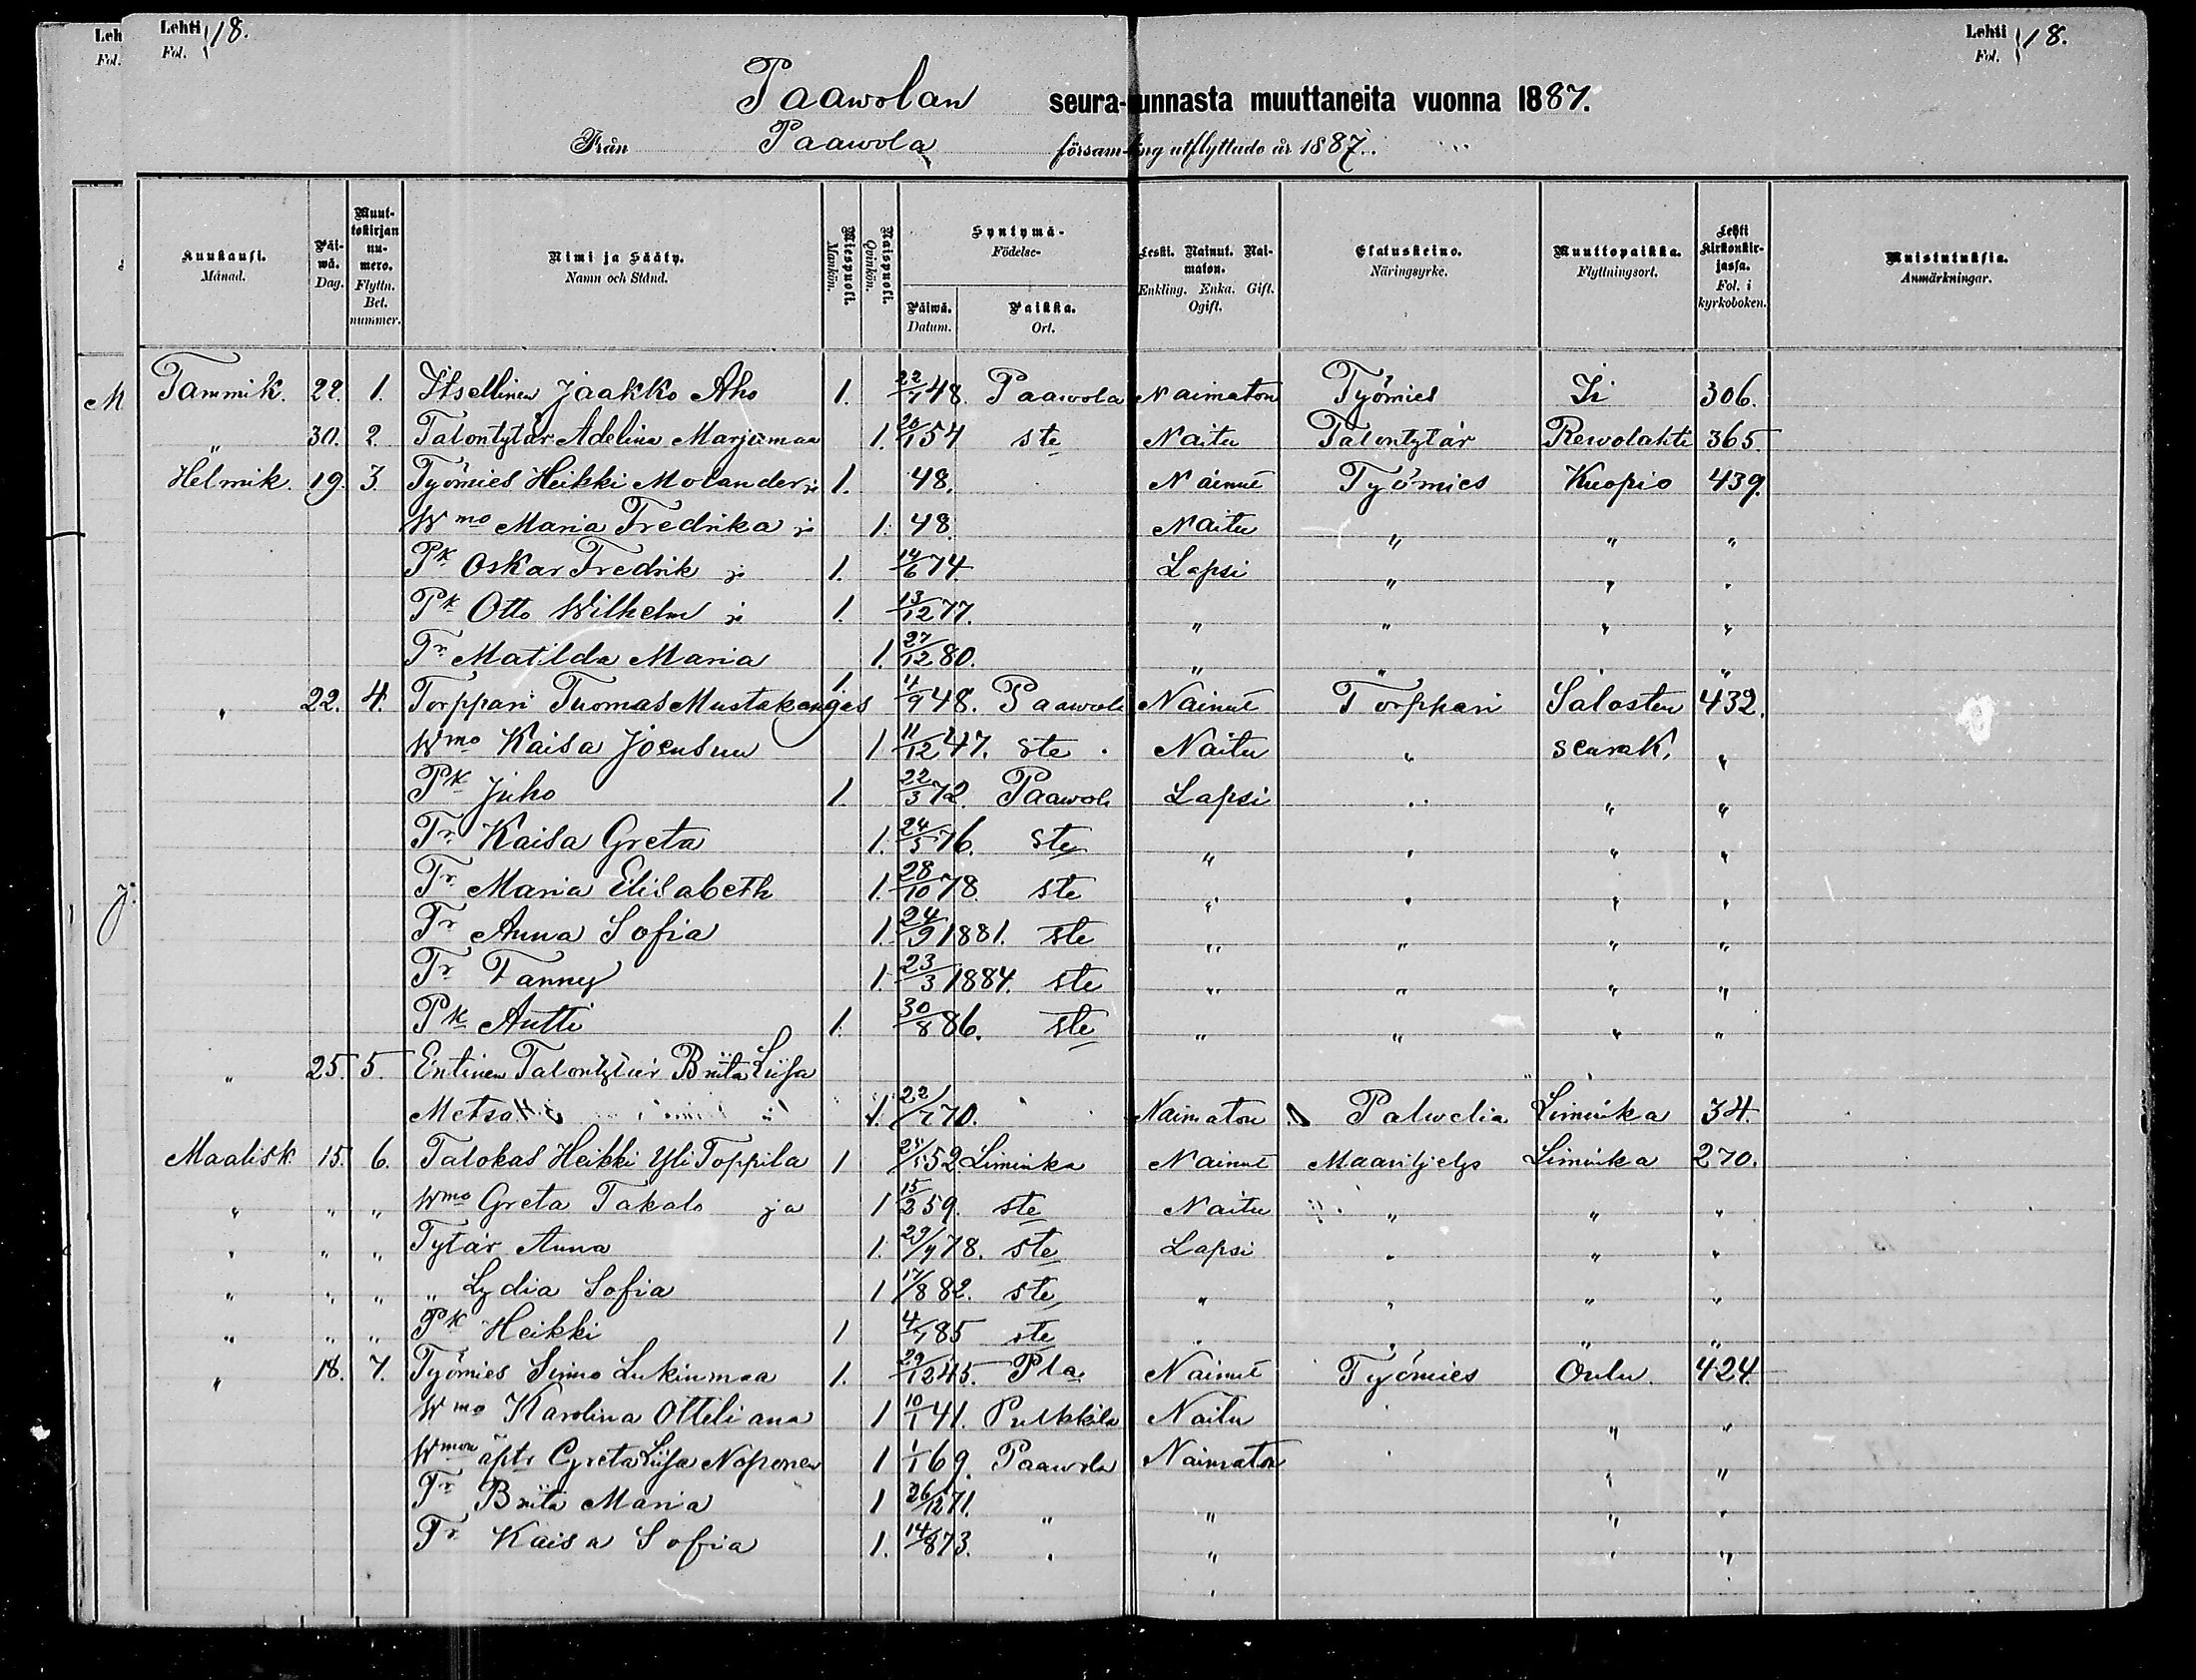 Leh
Fol.
Lehti 18.
Fol.
Lehti 18.
Fol.
Paawolan seura-unnasta muuttaneita vuonna 1887.
Från Paawola försam-ing utflyttade år 1887.
Kuukausi. Månad.
Päi-wä. Dag.
Muut-tokirjan nu-mero. Flyttn. Bet. nummer.
Nimi ja Sääty. Namn och Stånd.
Miespuoli. Mankön.
Naispuoli. Qvinkön.
Syntymä- Födelse-
Päiwä. Datum.
Paikka. Ort.
Leski. Nainut. Nai-maton. Enkling. Enka. Gift. Ogift.
Elatuskeino. Näringsyrke.
Muuttopaikka. Flyttningsort.
Lehti kirkonkir-jassa. Fol. i kyrkoboken.
Muistutuksia. Anmärkningar.
M
Tammik. 22. 1. Itsellinen Jaakko Aho 1. 22/7 48. Paawola Naimaton Työmies Ii 306.
" 30. 2 Talontytär Adelina Marjamaa 1. 20/1 54 ste Naitu Talontytär Rewolahti 365
Helmik. 19. 3. Työmies Heikki Molander ja 1. 48. Nainut Työmies Kuopio 439.
Wmo Maria Fredrika ja 1. 48. Naitu " " "
Pk Oskar Fredrik ja 1. 14/6 74. Lapsi " " "
Pk Otto Wilhelm ja 1. 13/12 77. " " " "
Tr Matilda Maria 1. 27/12 80. " " " "
" 22. 4. Torppari Tuomas Mustakangas 1. 11/9 48. Paawola Nainut Torppari Salosten 432.
Wmo Kaisa Joensuu 1 11/12 47. ste Naitu " seurak. "
Pk Juho 1. 22/3 72. Paawola Lapsi " " "
Tr Kaisa Greta 1. 24/5 76. ste " " " "
Tr Maria Elisabeth 1. 28/10 78. ste " " " "
Tr Anna Sofia 1. 24/9 1881. ste " " " "
Tr Fanny 1. 23/3 1884. ste " " " "
Pk Antti 1. 30/8 86. ste " " " "
J.
" 25. 5. Entinen Talontytär Briita Liisa
1. 22/7 70. Naimaton Palwelia Liminka 34.
Maalisk. 15. 6. Talokas Heikki Yli Toppila 1 52 Liminka Nainut Maanviljelys Liminka 270.
" " " Wmo Greta Takalo ja 1 15/2 59. ste Naitu " " "
" " " Tytär Anna 1. 29/9 78. ste Lapsi " " "
" " " " Lydia Sofia 1 17/8 82. ste " " " "
" " " Pk Heikki 1 4/1 85 ste " " " "
" 18. 7. Työmies Simo Lukinmaa 1. 29/12 45. Pla Nainut Työmies Oulu. 424
Wmo Karolina Otteliana 1 10/1 41. Pulkkila Naitu " "
Wmon äptr Greta Liisa Noponen 1 1/1 69. Paawola Naimaton " "
Tr Briita Maria 1 26/12 71. " " " "
Tr Kaisa Sofia 1. 14/8 73. " " " "